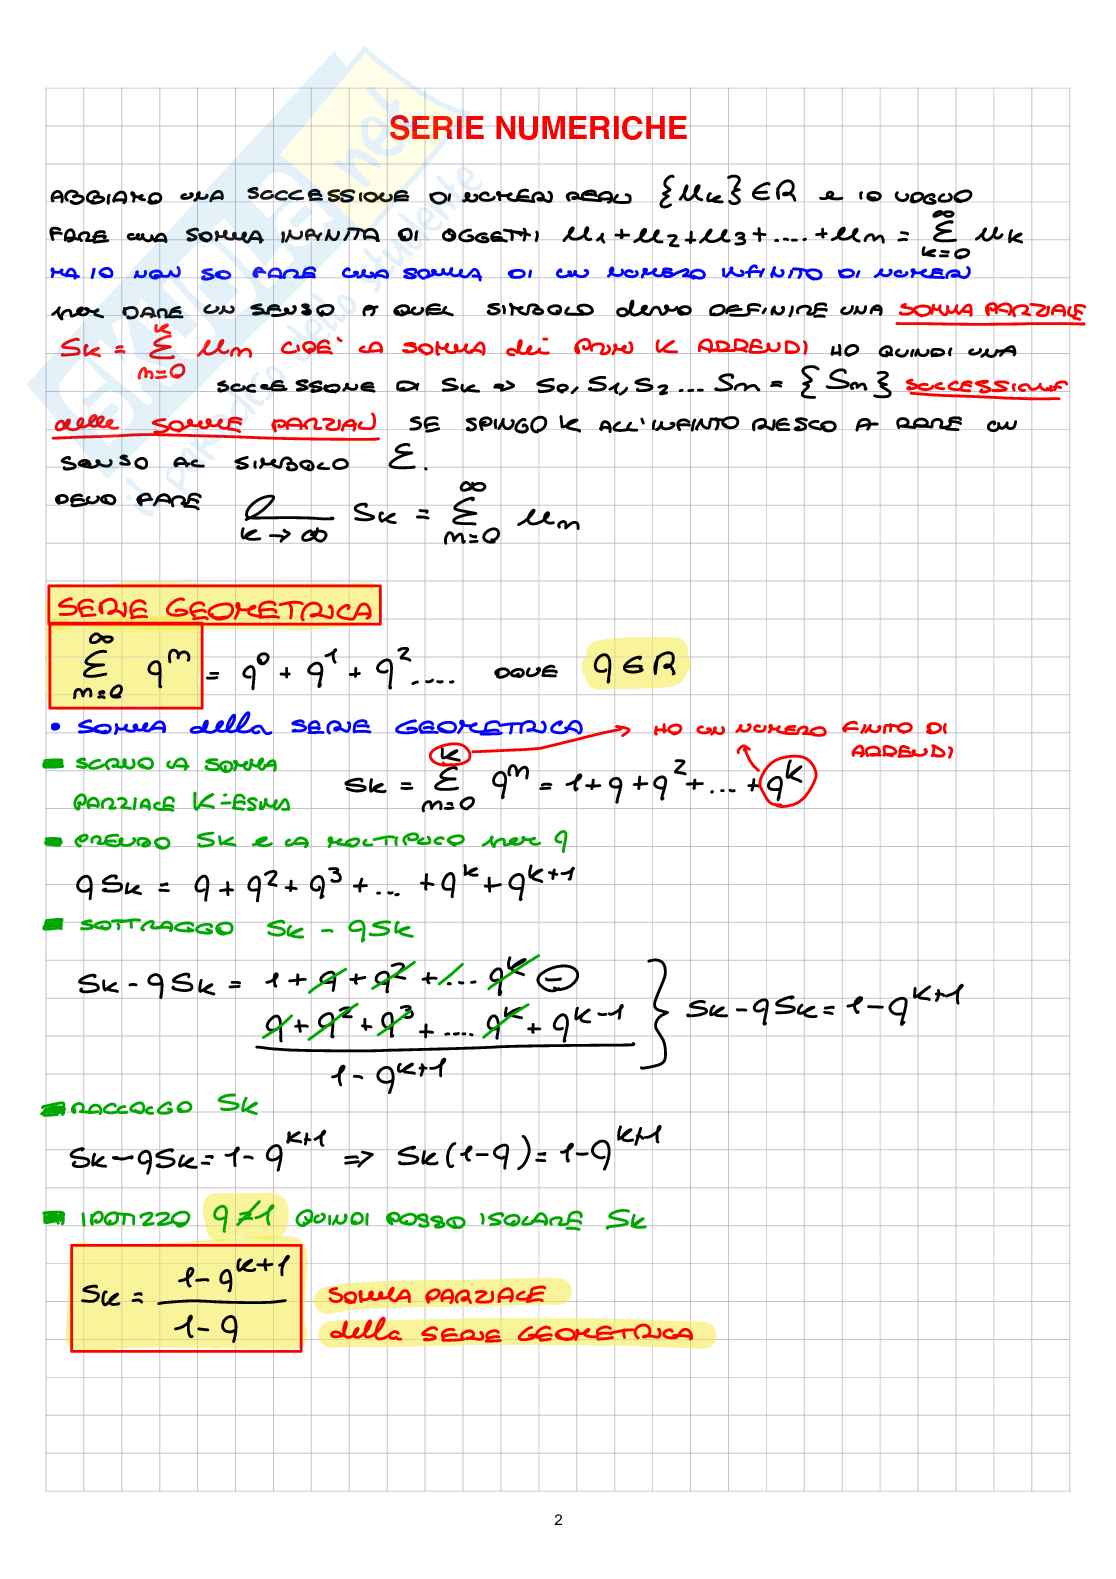 SERIE NUMERICHE
ABBIAMO UNA SUCCESSIONE DI NUMERI REALI {μk} ∈ R e IO VOGLIO
FARE UNA SOMMA INFINITA DI OGGETTI μ1+μ2+μ3+....+μm = ∞ Σ k=0 μk
MA IO NON SO FARE UNA SOMMA DI UN NUMERO INFINITO DI NUMERI
per DARE UN SENSO A QUEL SIMBOLO devo DEFINIRE UNA SOMMA PARZIALE
Sk = k Σ m=0 μm CIOE' LA SOMMA dei PRIMI K ADDENDI HO QUINDI UNA
SUCCESSIONE DI Sk ⇒ S0, S1, S2 ... Sm = {Sm} SUCCESSIONE
delle SOMME PARZIALI SE SPINGO K ALL'INFINITO RIESCO A DARE UN
SENSO AL SIMBOLO Σ.
DEVO FARE l k→∞ Sk = ∞ Σ m=0 μm
SERIE GEOMETRICA
∞ Σ m=0 q^m = q^0 + q^1 + q^2 .... DOVE q ∈ R
• SOMMA della SERIE GEOMETRICA → HO UN NUMERO FINITO DI
ADDENDI
SCRIVO LA SOMMA
PARZIALE K-ESIMA Sk = k Σ m=0 q^m = 1+q+q^2+...+q^k
PRENDO Sk e LA MOLTIPLICO per q
qSk = q + q^2 + q^3 + ... + q^k + q^k+1
SOTTRAGGO Sk - qSk
Sk - qSk = 1 + q + q^2 + .... q^k -
q + q^2 + q^3 + .... q^k + q^k-1 } Sk - qSk = 1 - q^k+1
1 - q^k+1
RACCOLGO Sk
Sk - qSk = 1 - q^k+1 ⇒ Sk(1-q) = 1-q^k+1
IPOTIZZO q≠1 QUINDI POSSO ISOLARE Sk
Sk = 1-q^k+1 / 1-q SOMMA PARZIALE
della SERIE GEOMETRICA
2